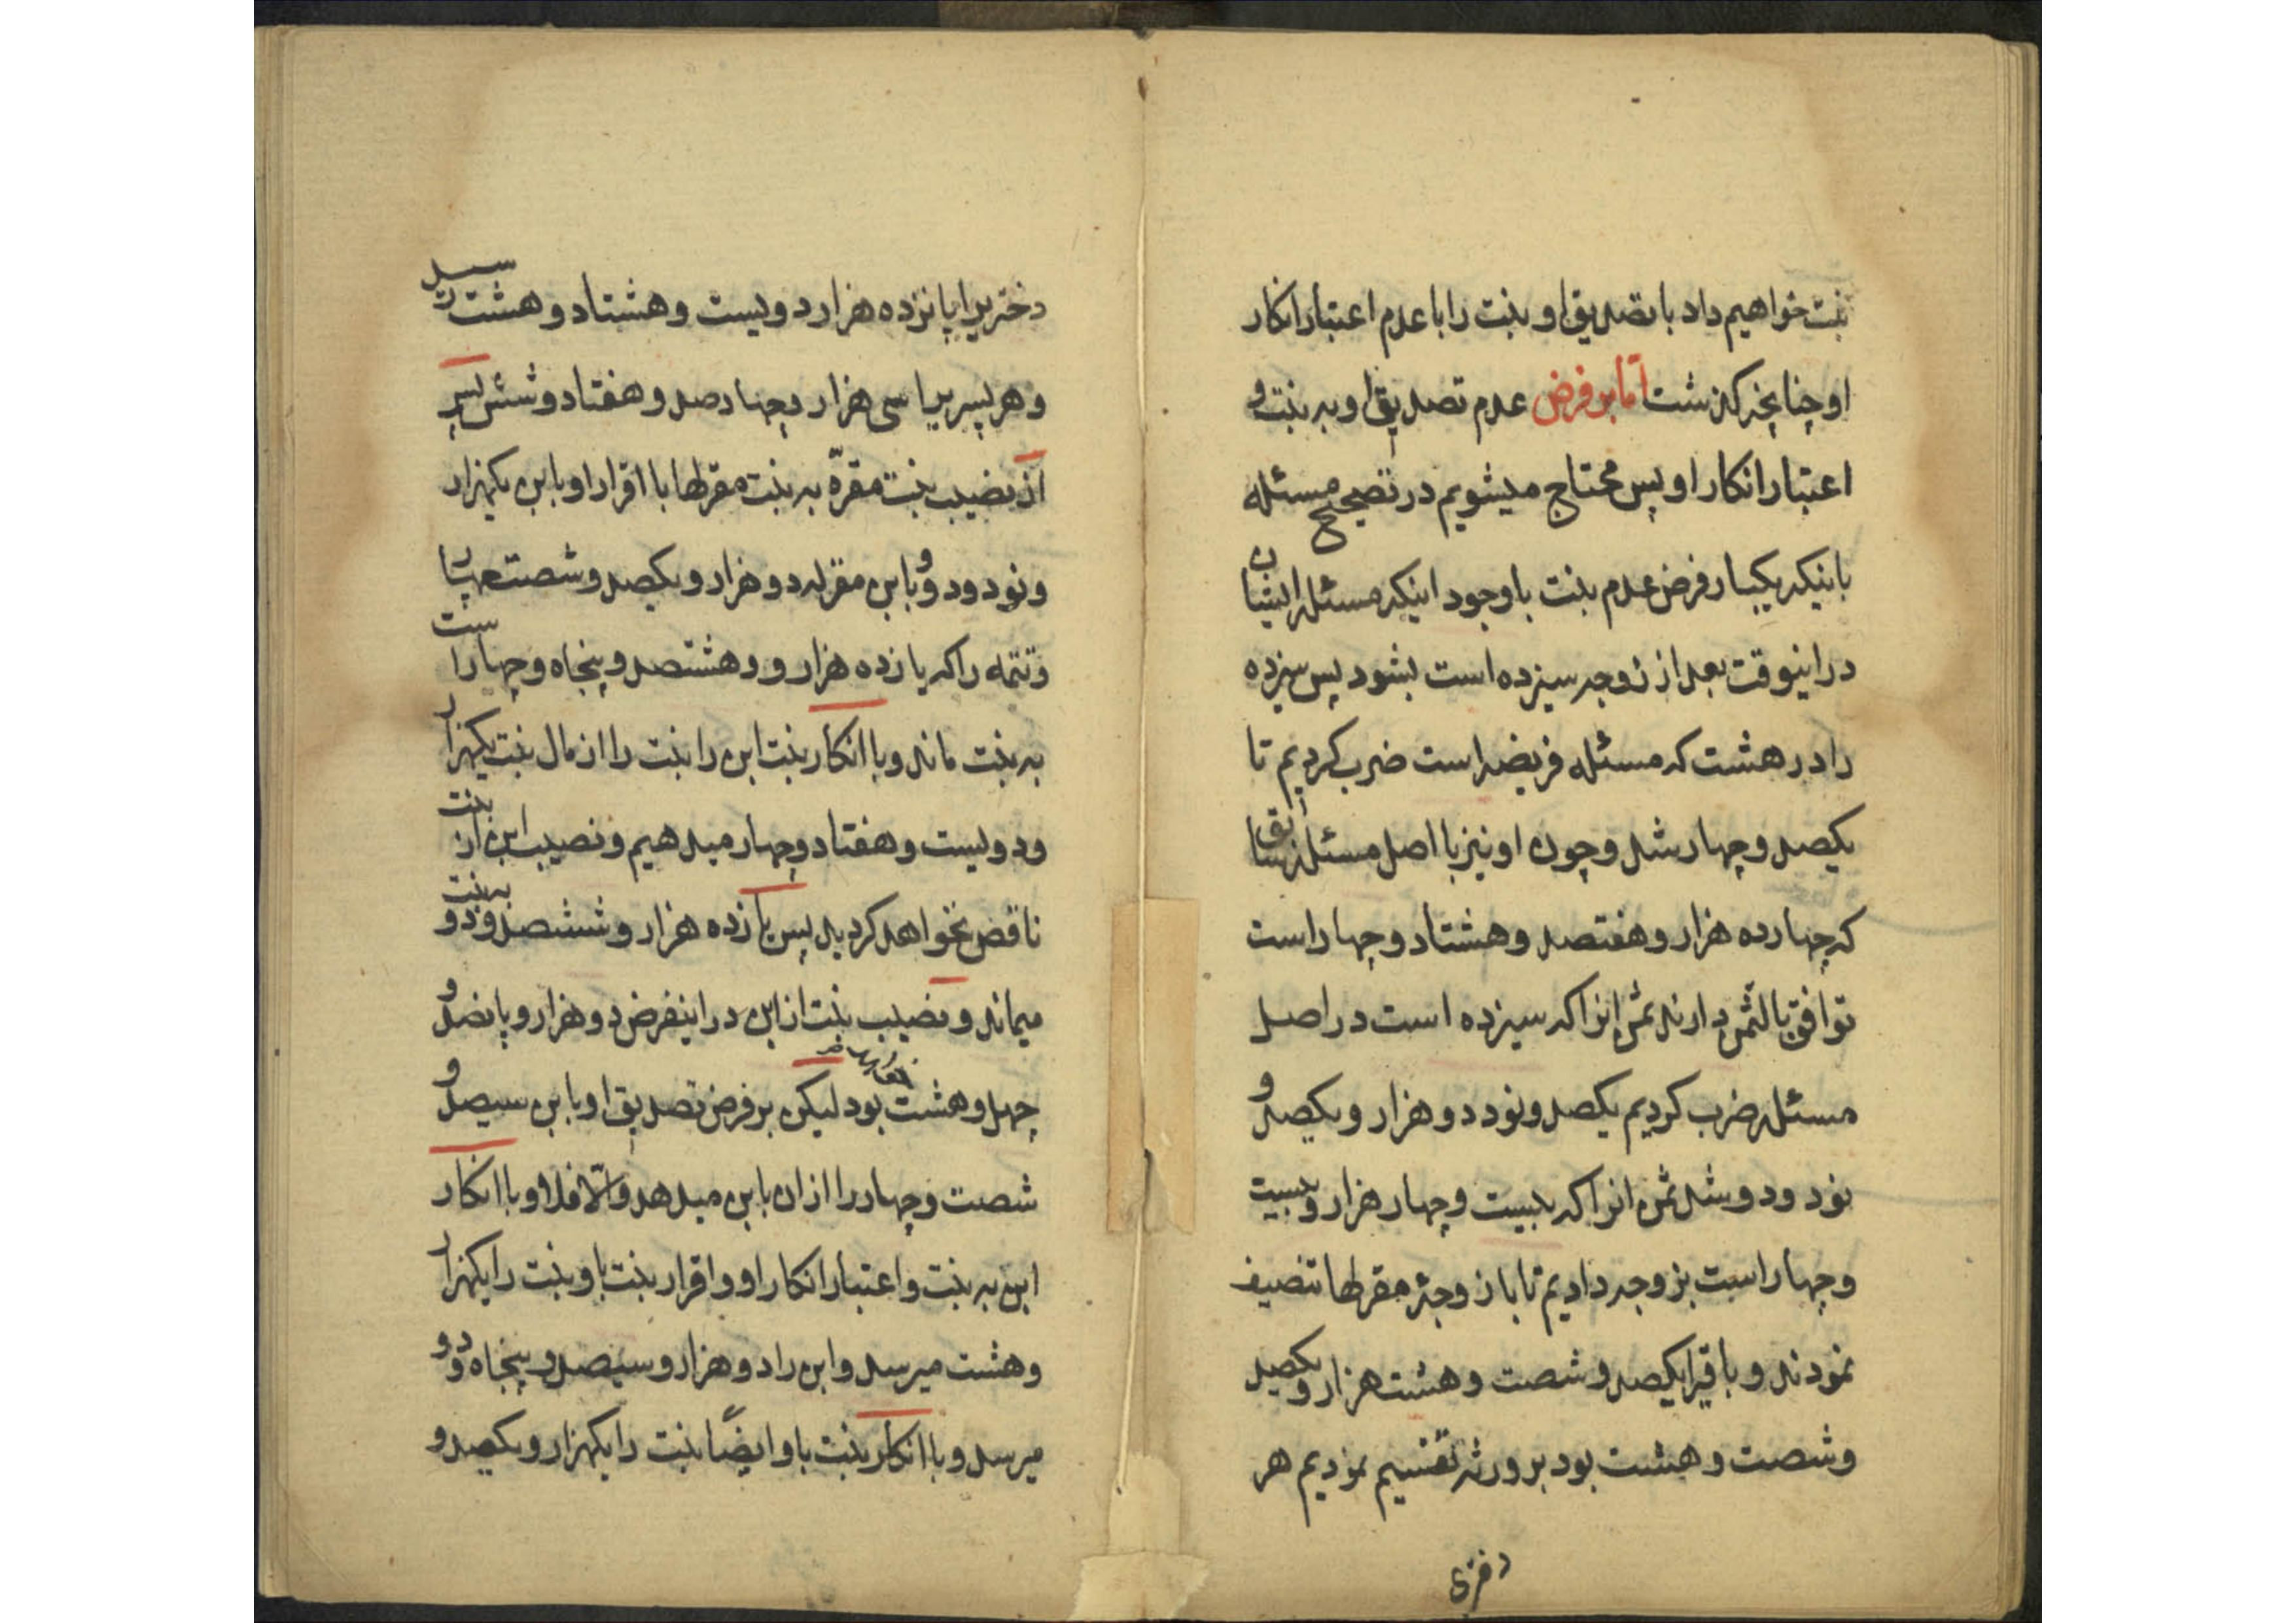 بنت خواهیم داد با تصدیق او بنت را با عدم اعتبار انکار
او چنانچه گذشت اما بر فرض عدم تصدیق او به بنت و
اعتبار انکار او پس محتاج میشویم در تصحیح مسئله
باینکه یکبار فرض عدم بنت باوجود اینکه مسئله ایشان
در اینوقت بعد از زوجه سیزده است بشود پس سیزده
را در هشت که مسئله فریضه است ضرب کردیم تا
یکصد و چهار شد و چون او نیز با اصل مسئله سابق
که چهارده هزار و هفتصد و هشتاد و چهار است
توافق بالثمن دارند ثمن انرا که سیزده است در اصل
مسئله ضرب کردیم یکصد و نود دو هزار و یکصد و
نود و دو شد ثمن انرا که بیست و چهار هزار و بیست
و چهار است بزوجه دادیم تا با زوجهٔ مقر لها تنصیف
نمودند و باقیرا یکصد و شصت و هشت هزار و یکصد
و شصت و هشت بود بر ورثه تقسیم نمودیم هر
دختری
دختریرا پانزده هزار دویست و هشتاد و هشت رسید
و هر پسریرا سی هزار و پانصد و هفتاد و شش پس
از نصیب بنت مقرّه به بنت مقر لها با اقرار او بابن یکهزار
و نود و دو و بابن مقر له دو هزار و یکصد و شصت و چهار
و تتمه را که یازده هزار و و هشتصد و پنجاه و چهار است
به بنت ماند و با انکار بنت ابن را بنت را از مال بنت یکهزار
و دویست و هفتاد و چهار میدهیم و نصیب ابن از بنت
ناقص نخواهد کردید پس یازده هزار و ششصد و دو به بنت
میماند و نصیب بنت از ابن در اینفرض دو هزار و پانصد و
چهل و هشت بود لیکن بر فرض تصدیق او بابن سیصد و
شصت و چهار را از ان بابن میدهد و الّا فلا و با انکار
ابن به بنت و اعتبار انکار او و اقرار بنت باو بنت را یکهزار
و هشت میرسد و ابن را دو هزار و سیصد و پنجاه و دو
میرسد و با انکار بنت باو ایضًا بنت را یکهزار و یکصد و